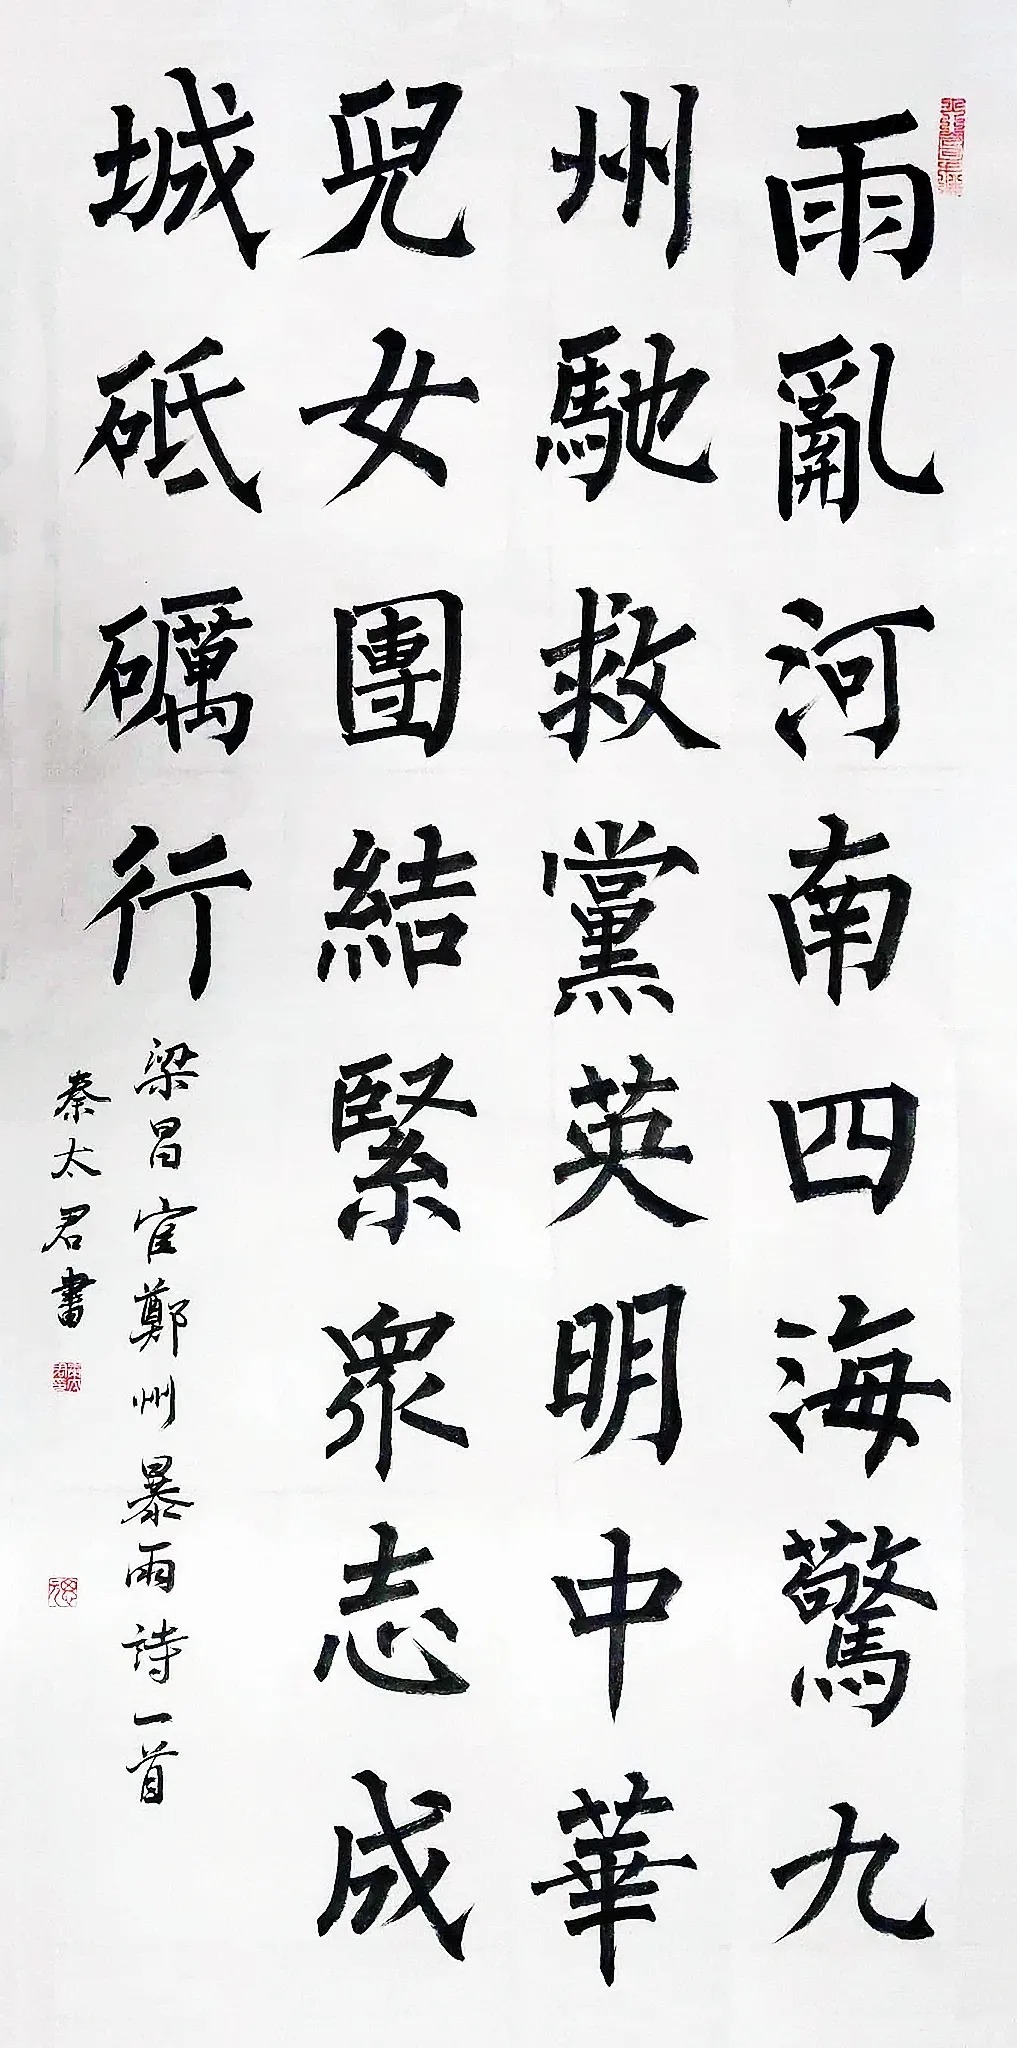 雨亂河南四海驚九
州馳救黨英明中華
兒女團結緊眾志成
城砥礪行
梁昌官鄭州暴雨詩一首
秦太君書